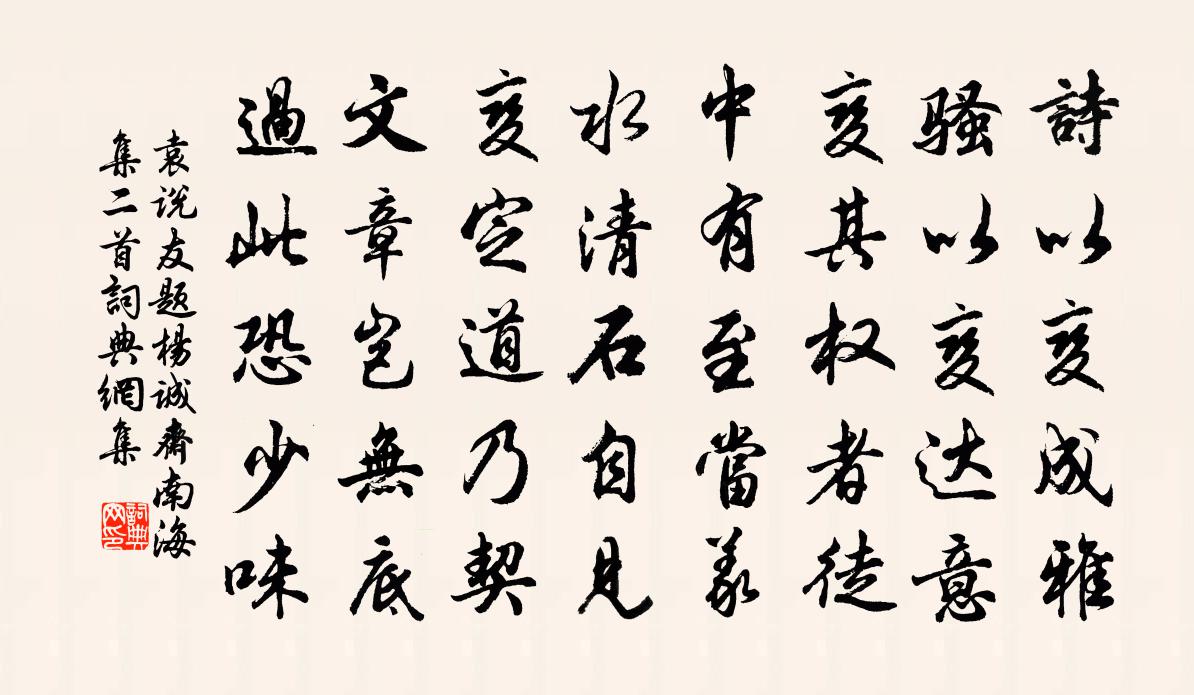 詩以变成雅
骚以变达意
变其权者徒
中有至當義
水清石自見
变定道乃契
文章岂無底
過此恐少味
袁说友题楊诚齋南海
集二首詞典網集
詞典网印